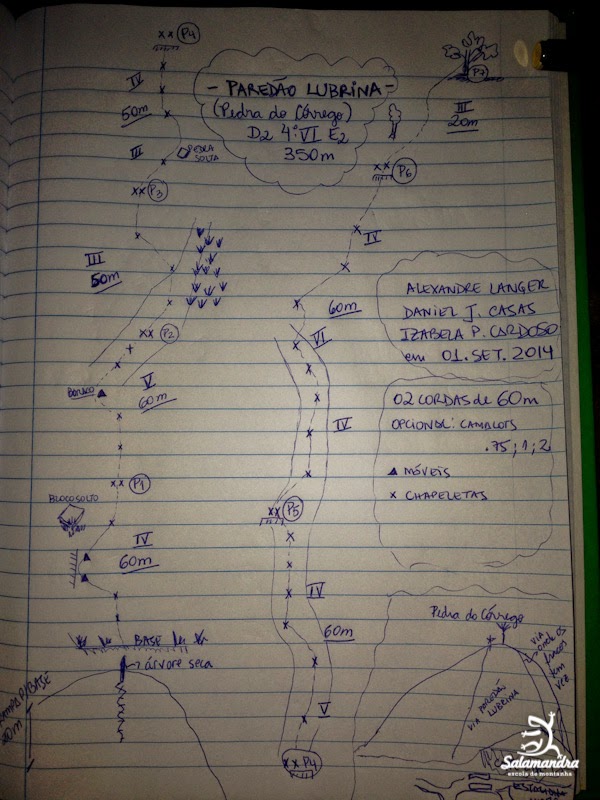 - PAREDÃO LUBRINA -
(Pedra do Córrego)
D2 4º VI E2
350m
ALEXANDRE LANGER
DANIEL J. CASAS
IZABELA P. CARDOSO
em 01. SET. 2014
02 CORDAS de 60m
OPCIONAL: CAMALOTS
.75; 1; 2
MÓVEIS
x CHAPELETAS
xx P4
IV
50m
III
PEDRA
SOLTA
xx P3
III
50m
xx P2
V
60m
BURACO
xx P1
BLOCO SOLTO
IV
60m
BASE
árvore seca
P7
III
20m
xx P6
IV
60m
VI
IV
xx P5
IV
60m
V
xx P4
Pedra do Córrego
VIA PAREDÃO
LUBRINA
VIA
ONDE OS
FRACOS
VEZ
Salamandra
escola de montanha